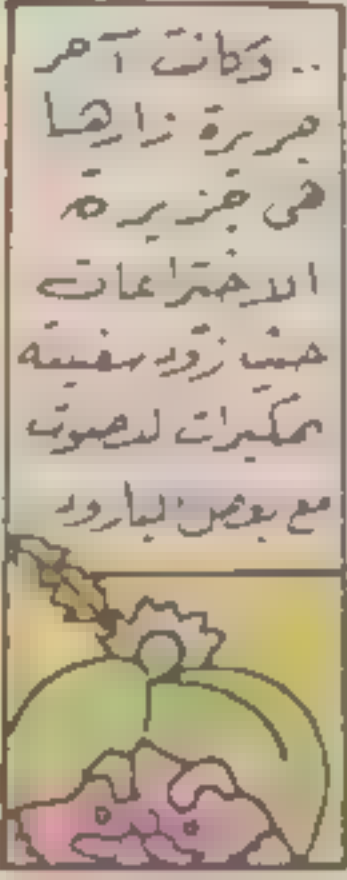 .. وكانت آخر
جزيرة زارها
هى جزيرة
الاختراعات
حيث زود سفينته
بمكبرات للصوت
مع بعض البارود